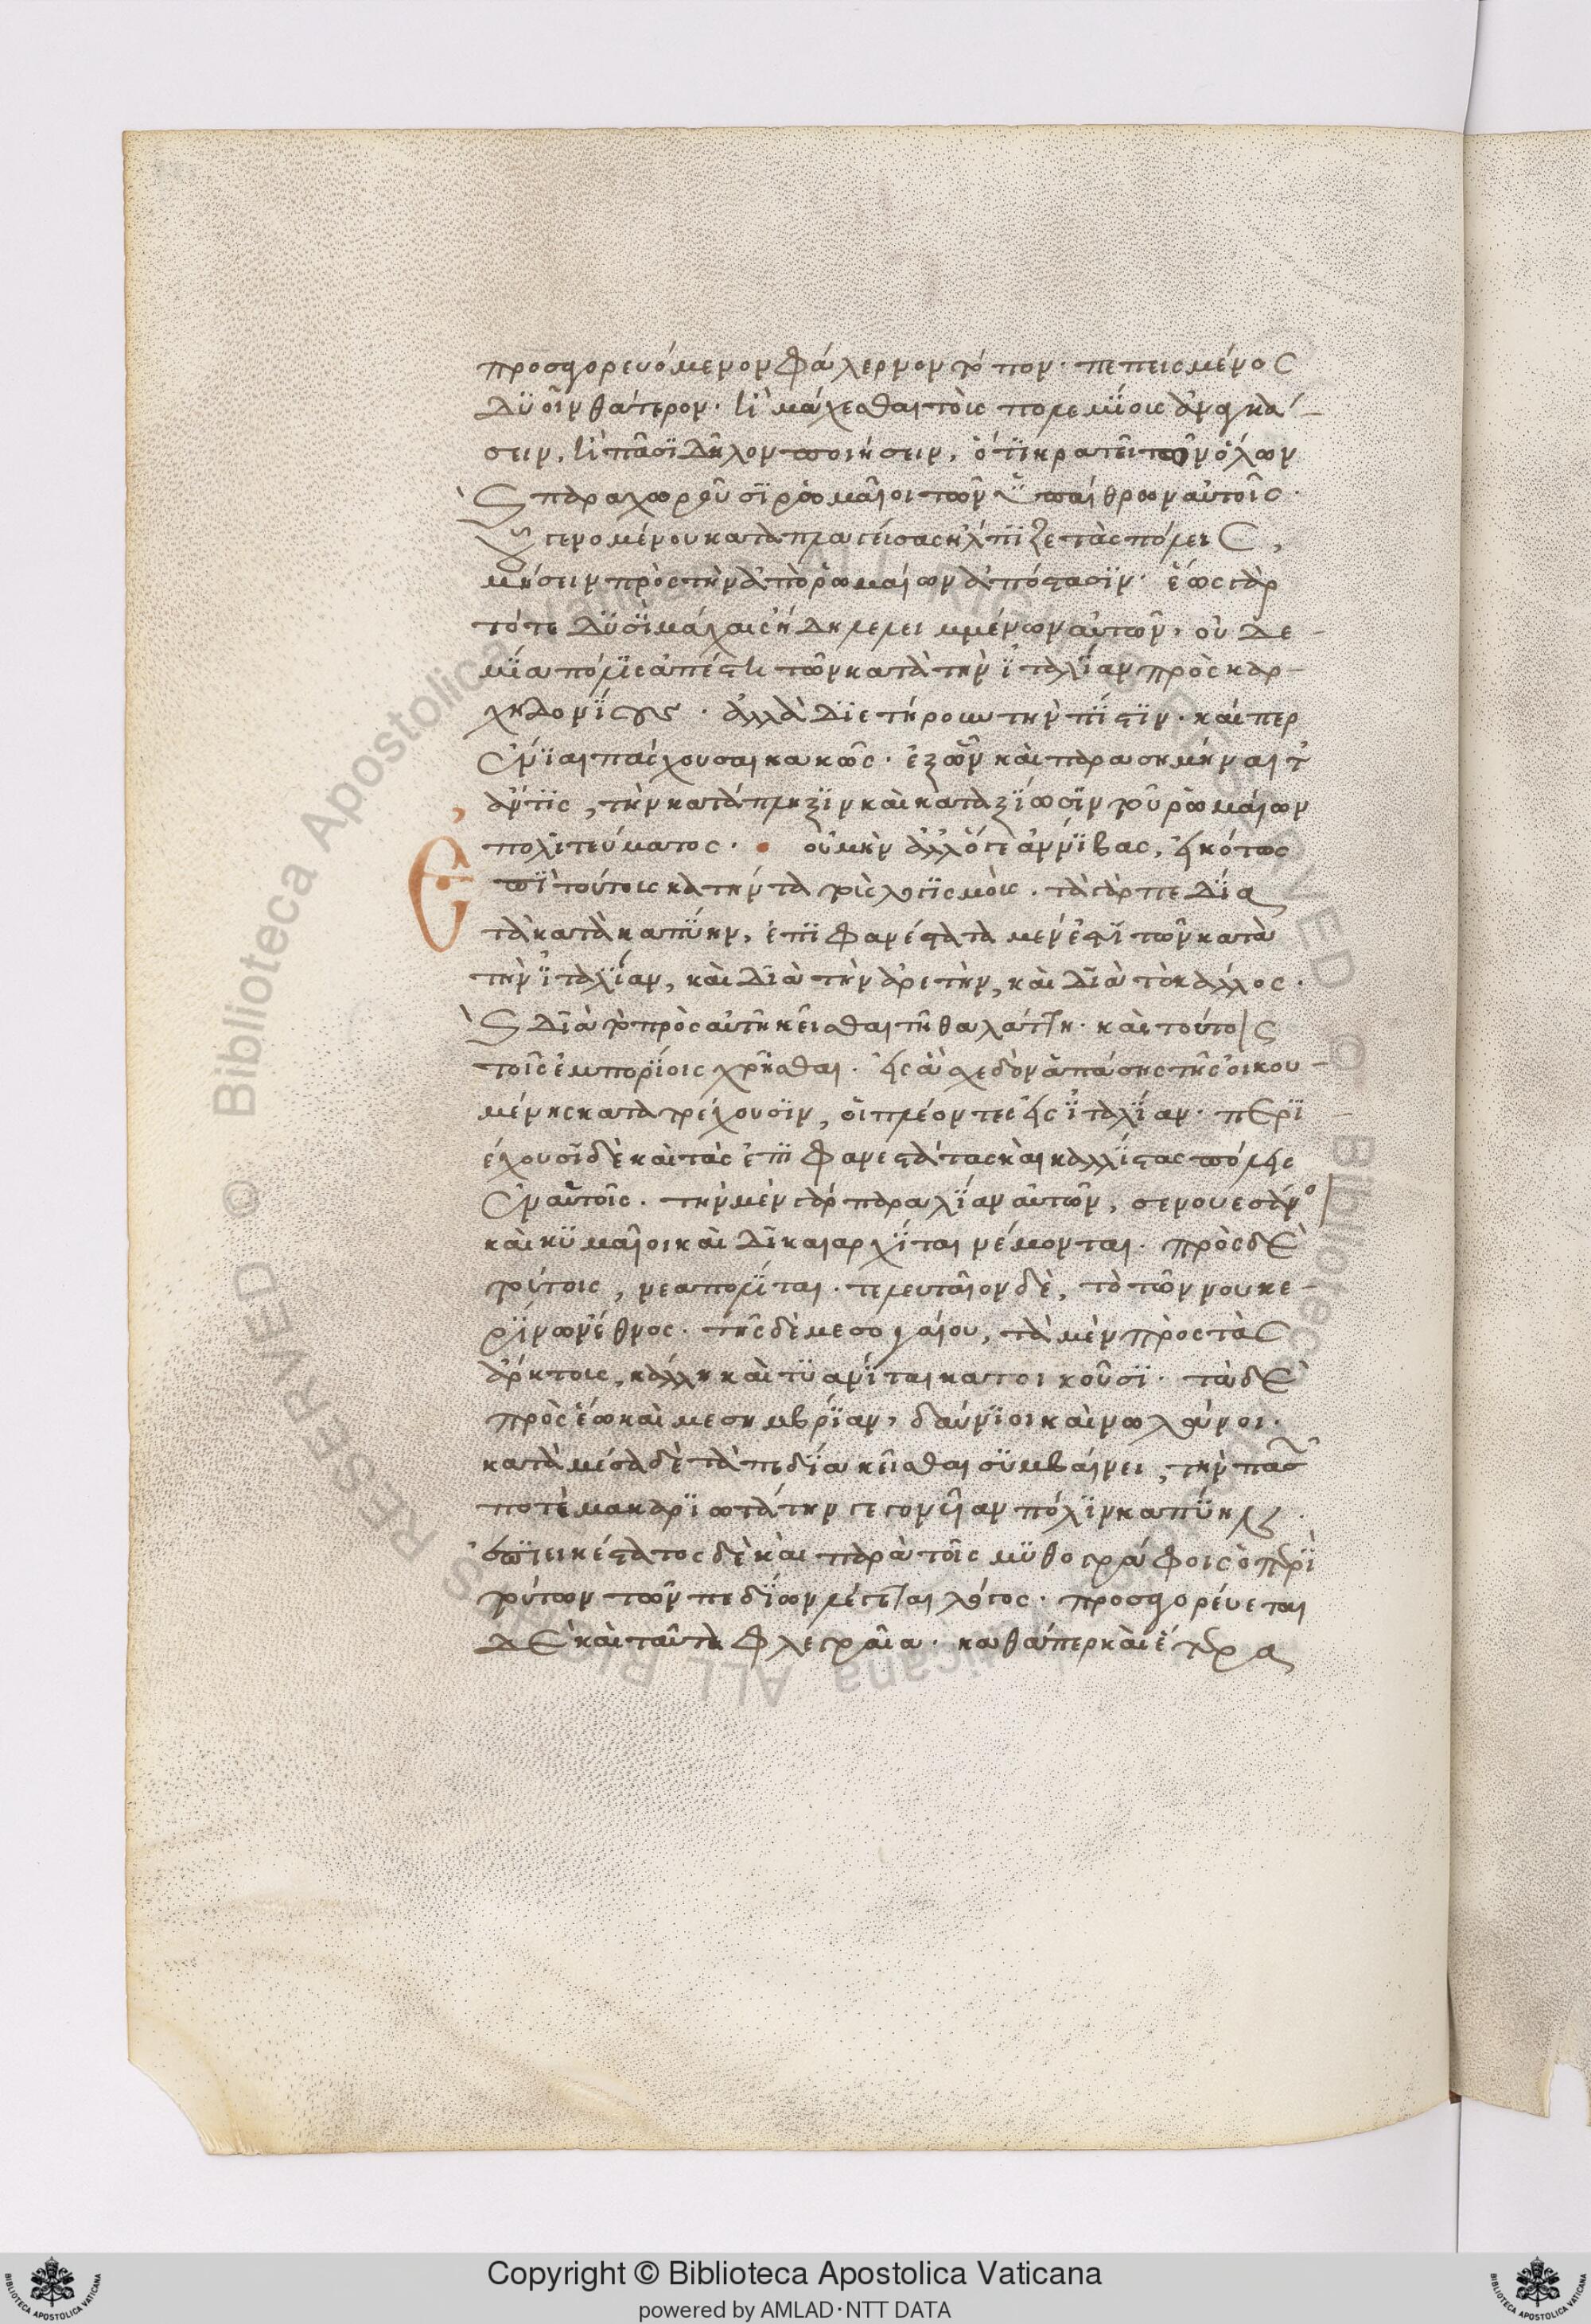 προσαγορευόμενον φάλερνον τόπον· πεπεισμένος
δυοῖν θάτερον. ἢ μάχεσθαι τοῖς πολεμίοις ἀναγκά-
σειν, ἢ πᾶσι δῆλον ποιήσειν, ὅτι κρατεῖ τῶν ὅλων
καὶ παραχωροῦσι ῥωμαῖοι τῶν ὑπαίθρων αὐτοῖς.
οὗ γενομένου καταπλαγείσας ἤλπιζε τὰς πόλεις,
μήσειν πρὸς τὴν ἀπὸ ῥωμαίων ἀπόστασιν. ἕως γὰρ
τότε δυσὶ μάχαις ἤδη λελειμμένων αὐτῶν, οὐδε-
μία πόλις ἀπέστη τῶν κατὰ τὴν ἰταλίαν πρὸς καρ-
χηδονίους. ἀλλὰ διετήρουν τὴν πίστιν. καίπερ
ἔνιαι πάσχουσαι κακῶς. ἐξ ὧν καὶ παρασημήναιτ
ἄν τις, τὴν κατάπληξιν καὶ καταξίωσιν τοῦ ῥωμαίων
πολιτεύματος. οὐ μὴν ἀλλ ὅ γε ἀννίβας, εἰκότως
Ἐπὶ τούτοις κατήντα τοῖς λογισμοῖς. τὰ γὰρ πεδία
τὰ κατὰ καπύην, ἐπιφανέστατα μέν ἐστι τῶν κατὰ
τὴν ἰταλίαν, καὶ διὰ τὴν ἀρετὴν, καὶ διὰ τὸ κάλλος.
καὶ διὰ τὸ πρὸς αὐτῇ κεῖσθαι τῇ θαλάττῃ. καὶ τούτοις
τοῖς ἐμπορίοις χρῆσθαι. εἰς ἃ σχεδὸν ἁπάσης τῆς οἰκου-
μένης κατατρέχουσιν, οἱ πλέοντες εἰς ἰταλίαν. περι
έχουσι δὲ καὶ τὰς ἐπιφανεστάτας καὶ καλλίστας πόλεις
ἐν αὐτοῖς. τὴν μὲν γὰρ παραλίαν αὐτῶν, σενουεσάνοι
καὶ κυμαῖοι καὶ δικαιαρχίται νέμονται. πρὸς δὲ
τούτοις, νεαπολίται. τελευταῖον δὲ, τὸ τῶν νουκε-
ρίνων ἔθνος. τῆς δὲ μεσογαίου, τὰ μὲν πρὸς τὰς
ἄρκτοις, κάλλη καὶ τυανίται κατοικοῦσι. τὰ δὲ
πρὸς ἕω καὶ μεσημβρίαν, δαύνιοι καὶ νωλαῦνοι.
κατὰ μέσα δὲ τὰ πεδία κεῖσθαι συμβαίνει, τὴν πασ
ποτὲ μακαριωτάτην γεγονεῖαν πόλιν καπύης.
ἐπιεικέστατος δὲ καὶ παρὰ τοῖς μυθογράφοις ὁ περὶ
τούτων τῶν πεδίων λέγεται λόγος. προσαγορεύεται
δὲ καὶ ταῦτα φλεγραῖα. καθάπερ καὶ ἕτερα